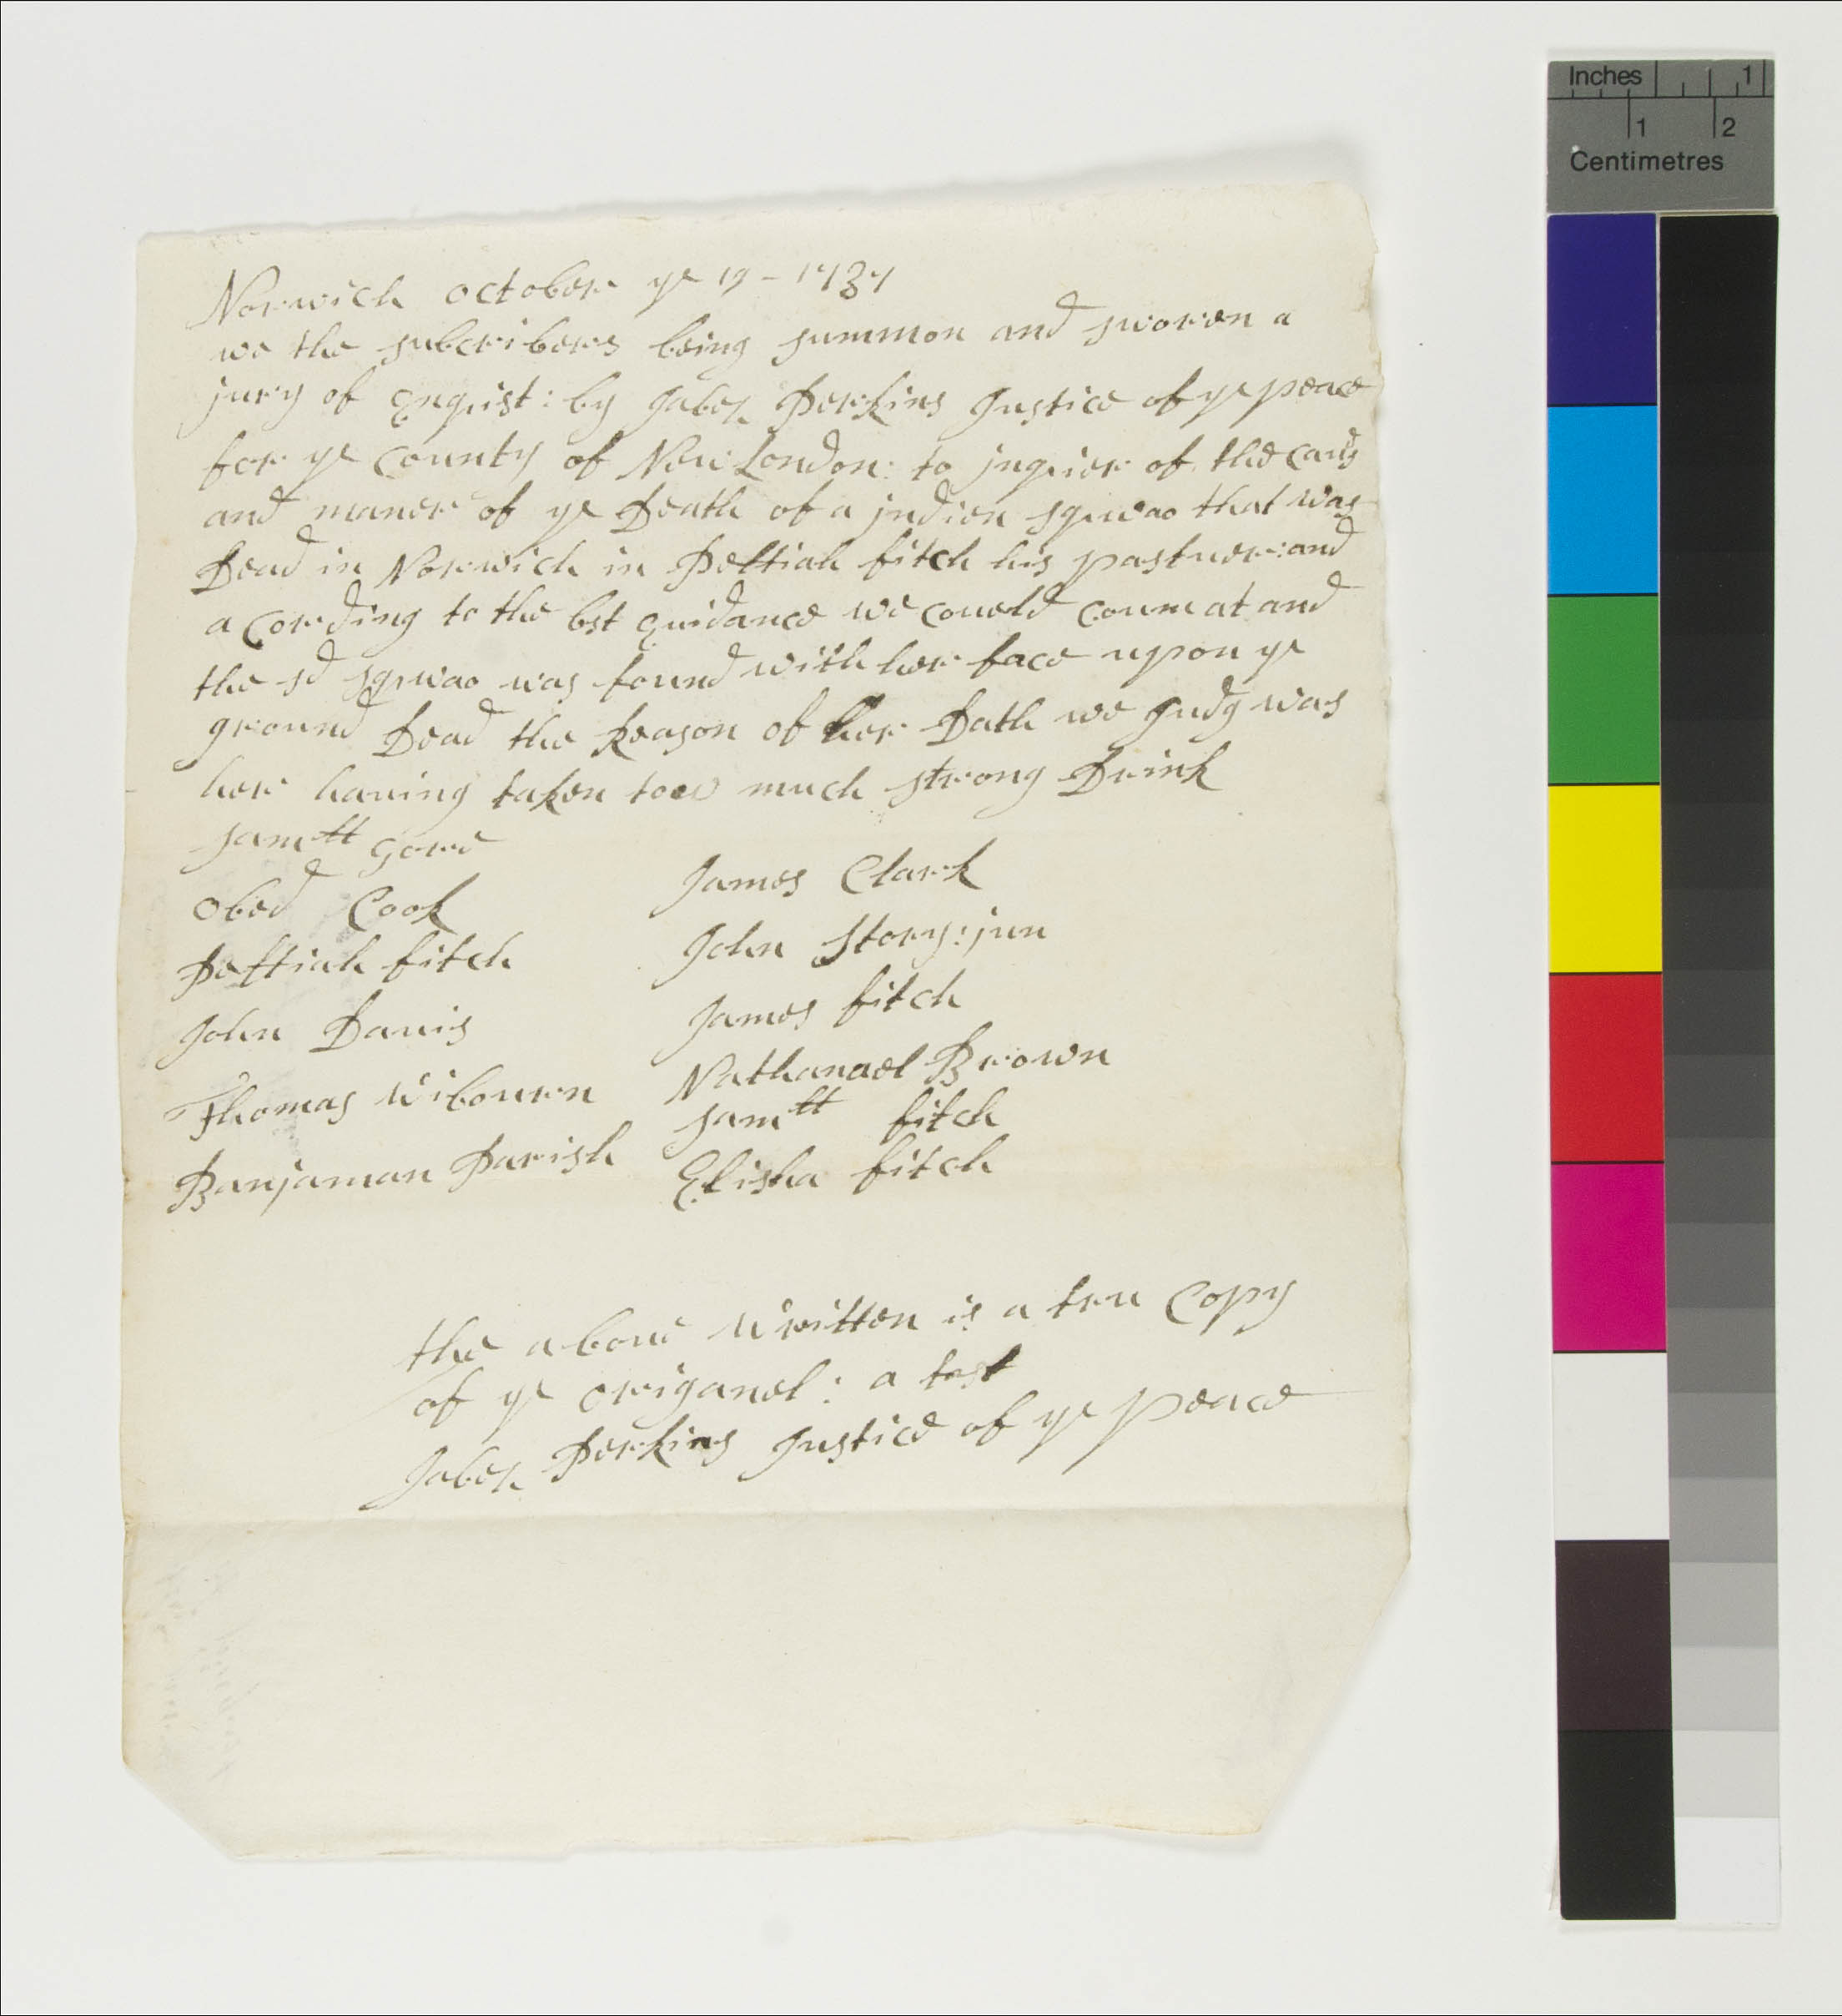 Norwich october ye 19 - 1737
we the subcribers being summon and sworen a
jury of Enquist : by Jabez Perkins Justice of ye peace
for ye County of New London : to jnquier of the Caus
and maner of ye Death of a jndien squwao that was
Dead in Norwich in Peltiah fitch his pastuer : and
a Cording to the bst Euidance we coueld Coum at and
the sd squwao was found with her face upon ye
ground Dead the Reason of her Dath we Judg was
her hauing taken toow much strong Drink
samll Gore
obed Cook
Peltiah fitch
John Dauis
Thomas Wibourn
Banjaman Parish
James Clark
John Story : jun
James fitch
Nathanael Brown
samll fitch
Elisha fitch
the aboue Written is a tru Copy
of ye origanel : a test
Jabez Perkins Justice of ye peace
Inches 1
1 2
Centimetres